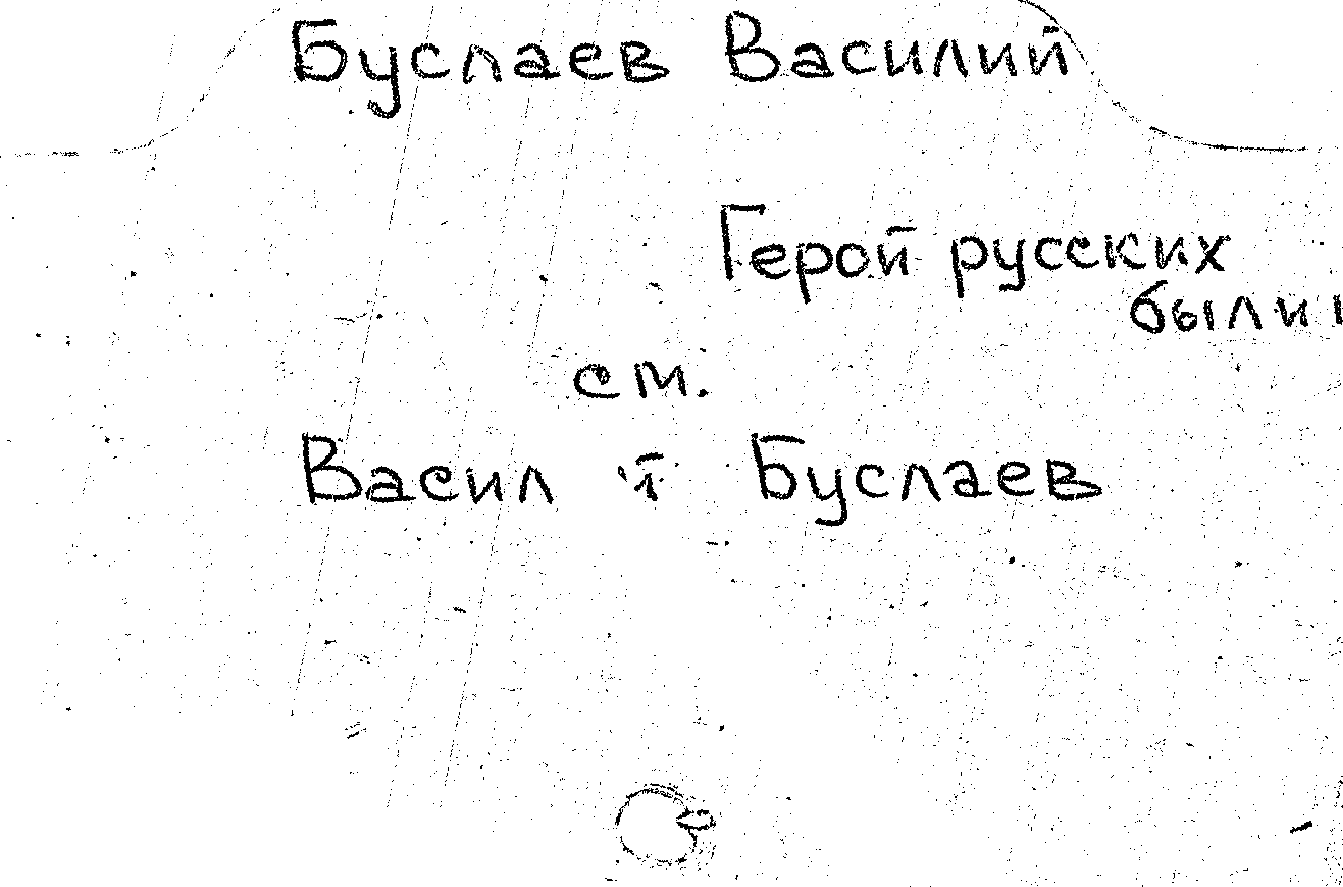 Буслаев Василий
Герой русских
были
см.
Васил й Буслаев